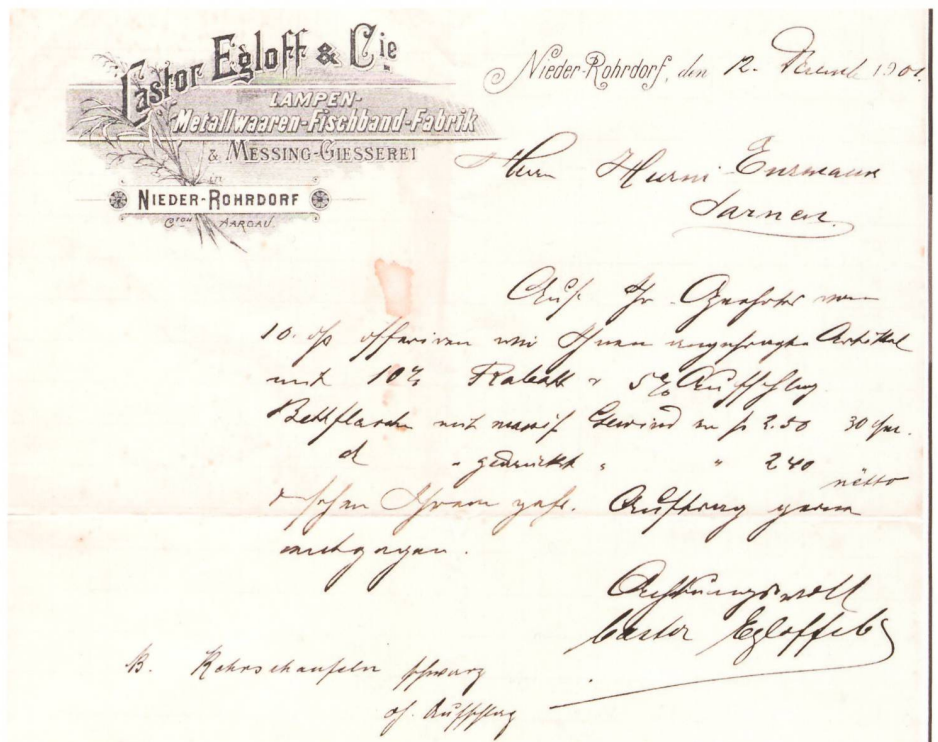 Castor Egloff & Cie
LAMPEN-
Metallwaaren-Fischband-Fabrik
& MESSING-GIESSEREI
NIEDER-ROHRDORF
Cton AARGAU.
Nieder-Rohrdorf, den 12. Dezemb 1901.
Herrn Hurni-Ensmann
Sarnen.
Auf Ihr Geehrtes vom
10. ds offeriren wir Ihnen angefragte Artikel
mit 10% Rabatt & 5% Aufschlag.
Bettflaschen mit massif Gewind zu fr 2.50 30
d " gedrückt " " 2 40
netto
& sehen Ihrem gefl. Auftrag gerne
entgegen.
Achtungsvoll
Castor Egloff & Cie
B. Kohrschaufeln schwarz
of. Aufschlag